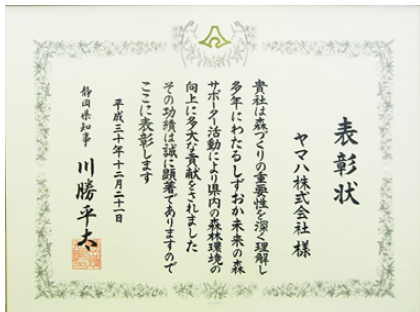 表彰状
ヤマハ株式会社 様
貴社は森づくりの重要性を深く理解し
多年にわたるしずおか未来の森
サポーター活動により県内の森林環境の
向上に多大な貢献をされました
その功績は誠に顕著でありますので
ここに表彰します
平成三十年十二月二十一日
静岡県知事 川勝平太